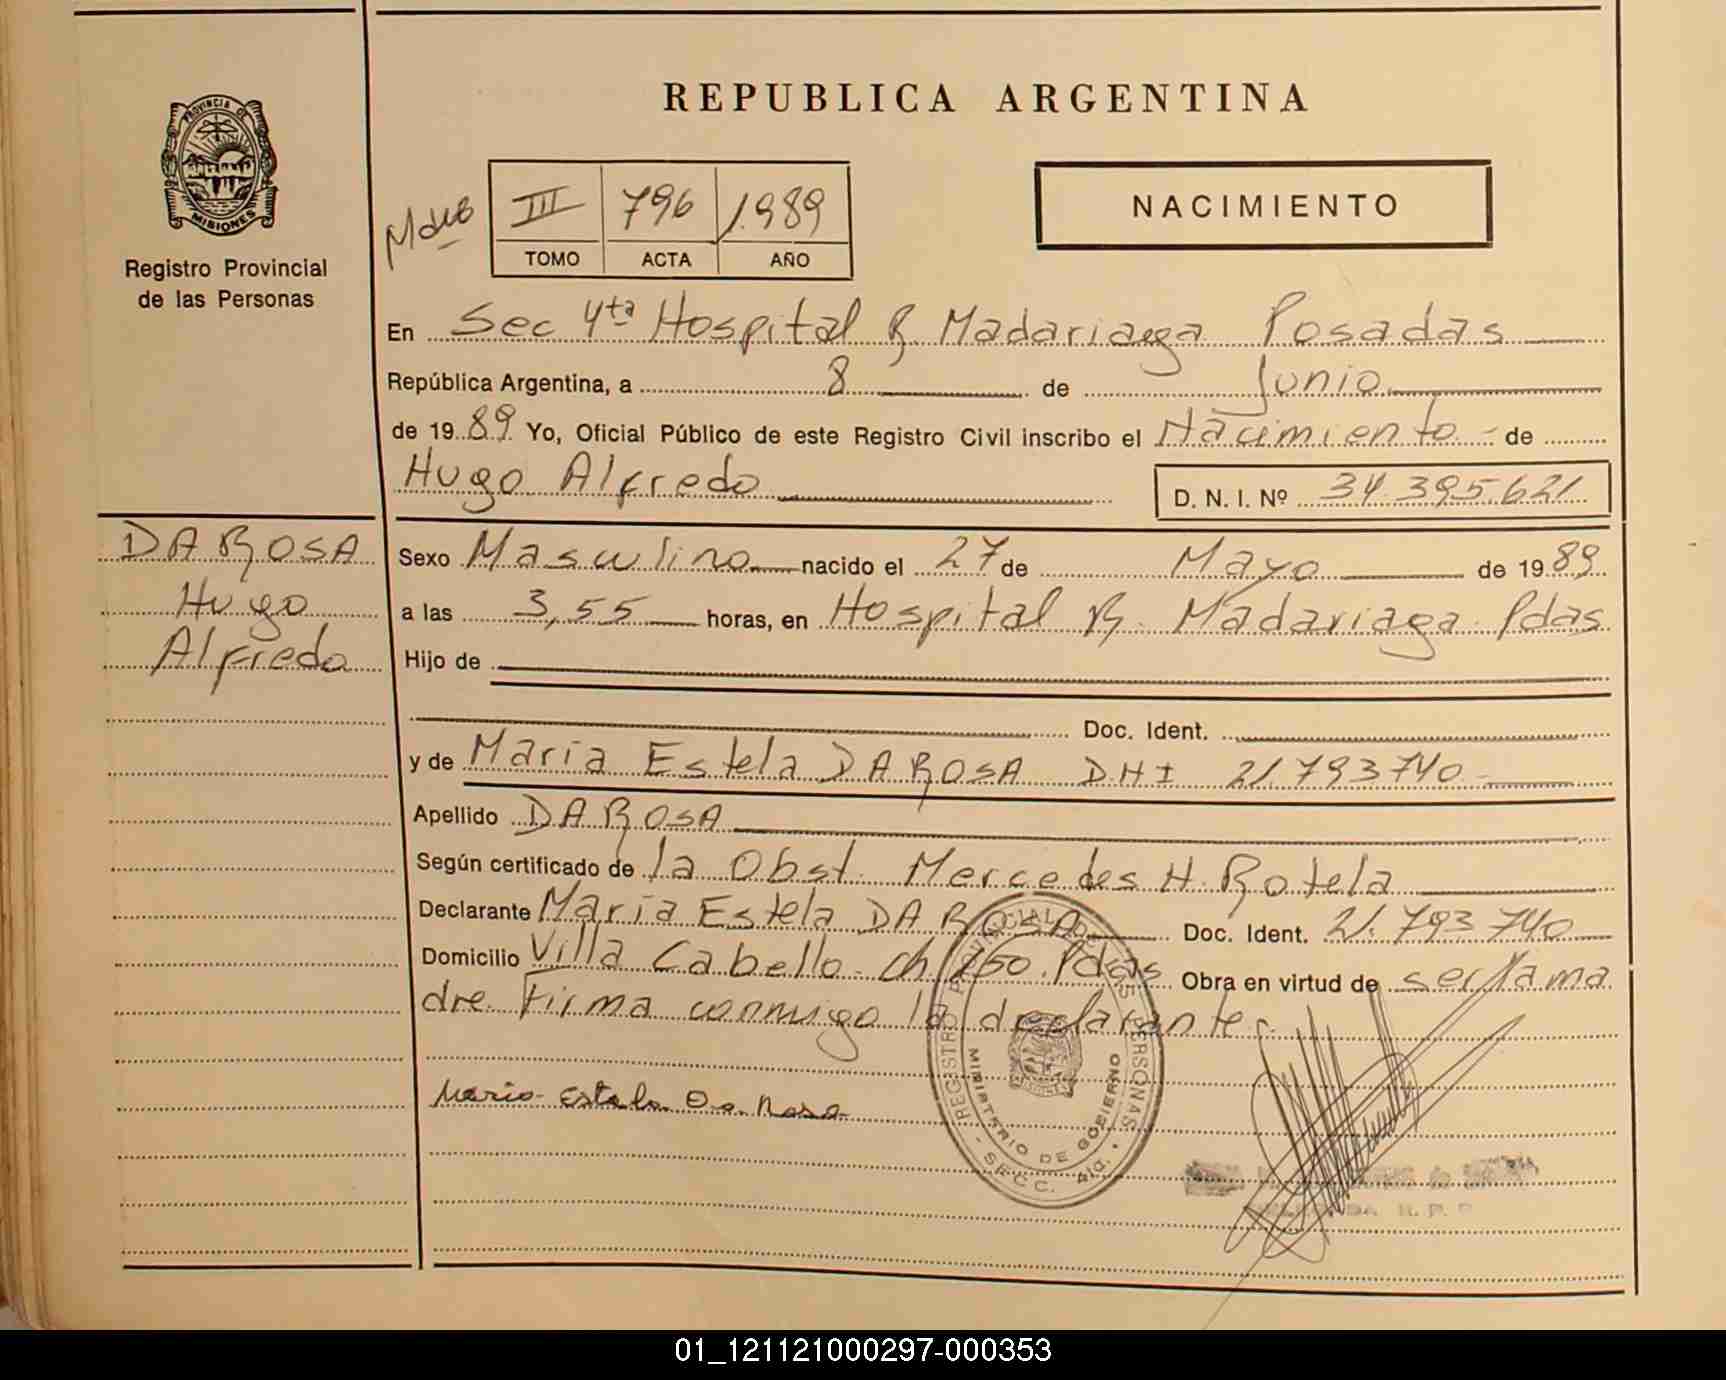 REPUBLICA ARGENTINA
PROVINCIA DE
MISIONES
Registro Provincial
de las Personas
III 796 1.989
TOMO ACTA AÑO
NACIMIENTO
En Sec 4ta Hospital R. Madariaga Posadas
República Argentina, a 8 de Junio
de 1989 Yo, Oficial Público de este Registro Civil inscribo el Nacimiento de
Hugo Alfredo D. N. I. Nº 34.395.621
DA ROSA
Hugo
Alfredo
Sexo Masculino nacido el 27 de Mayo de 1989
a las 3,55 horas, en Hospital R. Madariaga Pdas
Hijo de
Doc. Ident.
y de Maria Estela DA ROSA DNI 21.793740
Apellido DA ROSA
Según certificado de la Obst. Mercedes H. Rotela
Declarante María Estela DA ROSA Doc. Ident. 21.793740
Domicilio Villa Cabello ch 150. Pdas Obra en virtud de ser la ma
dre. Firma conmigo la declarante.
Maria Estela Da Rosa
REGISTRO PROVINCIAL DE LAS PERSONAS
MINISTERIO DE GOBIERNO
SECC. 4ta.
01_121121000297-000353